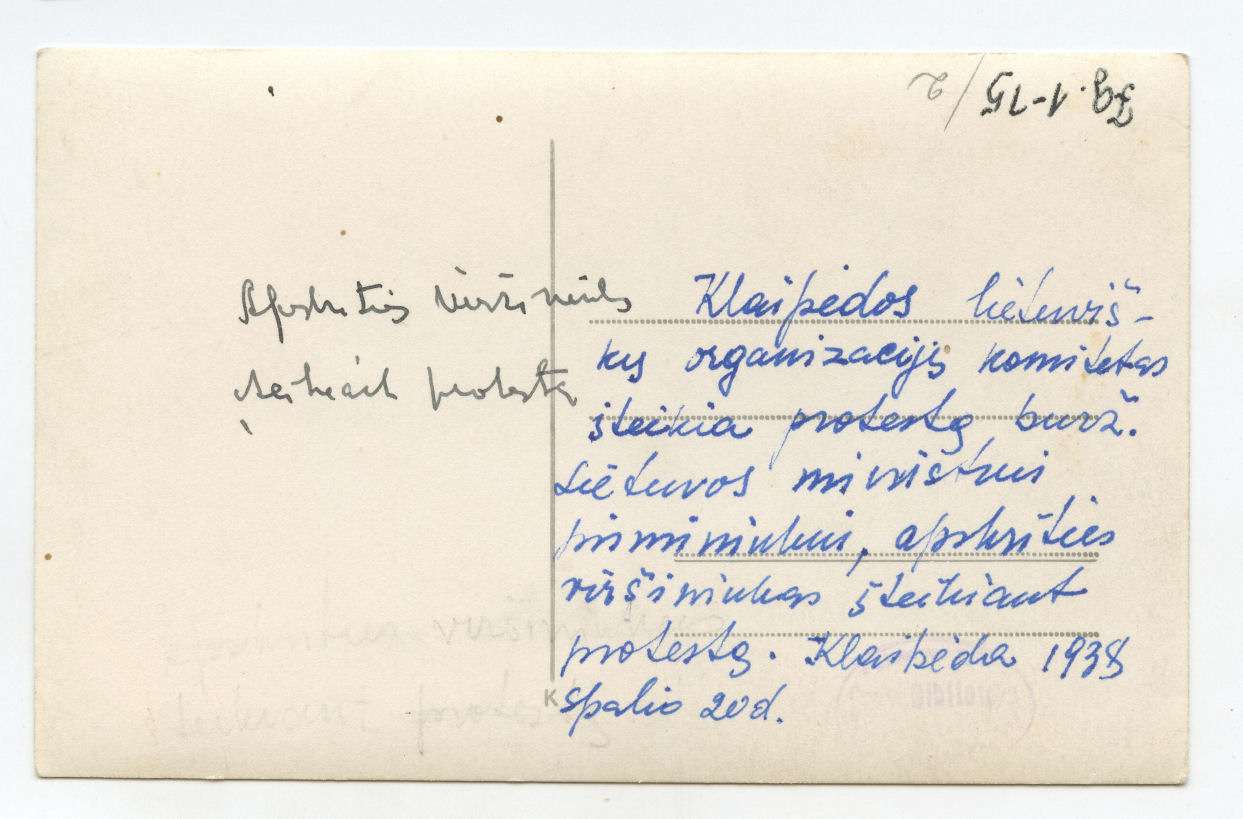 Fg. 1-75/2
Apskrities viršininkas
įteikiant protestą
Klaipėdos lietuviš-
kų organizacijų komitetas
įteikia protestą burž.
Lietuvos ministrui
pirmininkui, apskrities
viršininkas įteikiant
protestą. Klaipėda 1938
spalio 20d.
K
apskrities viršininkas
įteikiant protestą